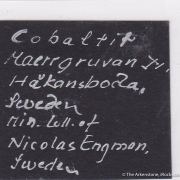 Cobaltit
Håkansboda,
Sweden
Min. Coll. of
Nicolas Engman,
Sweden
© The Arkenstone, iRocks.com